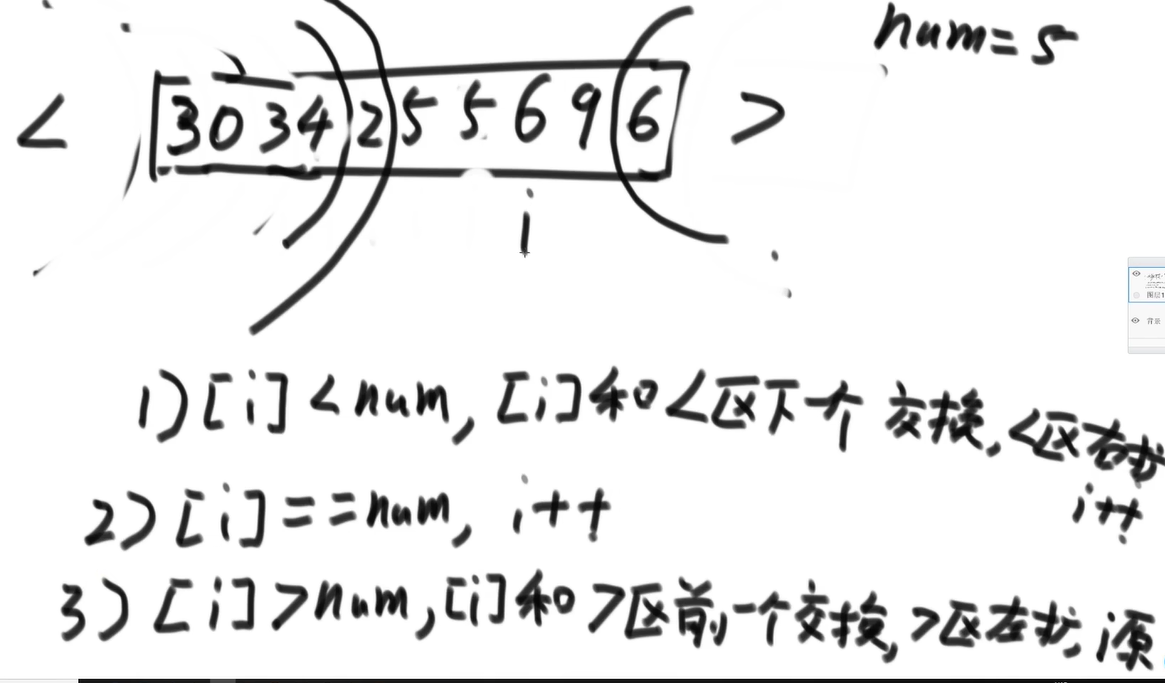 num=5
< [3 0 3 4) 2) 5 5 6 9 (6] >
i
1) [i] < num, [i]和<区下一个 交换, <区右扩
i++
2) [i] == num, i++
3) [i] > num, [i]和 >区前一个交换, >区左扩, i原
背景